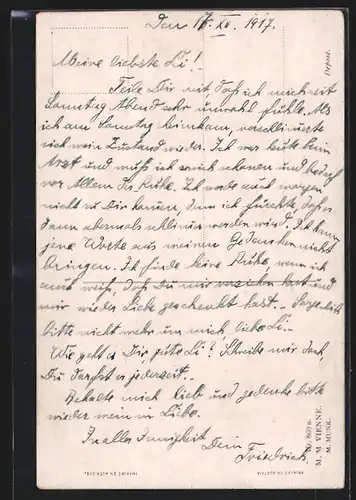 Den 17. XII. 1917.
Meine liebste Li!
Teile Dir mit daß ich mich seit
Samstag Abend sehr unwohl fühle. Als
ich am Samstag heimkam, verschlimmerte
sich mein Zustand wieder. Ich war heute beim
Arzt und muß ich mich schonen und bedarf
vor Allem der Ruhe. Ich werde auch morgen
nicht zu Dir kommen, denn ich fürchte, daß es
dann abermals schlimmer werden wird. Ich kann
jene Worte aus meinen Gedanken nicht
bringen. Ich finde keine Ruhe, wenn ich
auch weiß, daß Du mir verziehen hast und
mir wieder Liebe geschenkt hast. - Sorge Dich
bitte nicht mehr um mich liebe Li. -
Wie geht es Dir, gute Li? Schreibe mir doch,
Du darfst es jederzeit. -
Behalte mich lieb und gedenke bitte
wieder mein in Liebe.
In aller Innigkeit Dein
Friedrich.
Deposé.
M. M. VIENNE.
M. MUNK.
IMPRIMÉ EN AUTRICHE.
PRINTED IN AUSTRIA